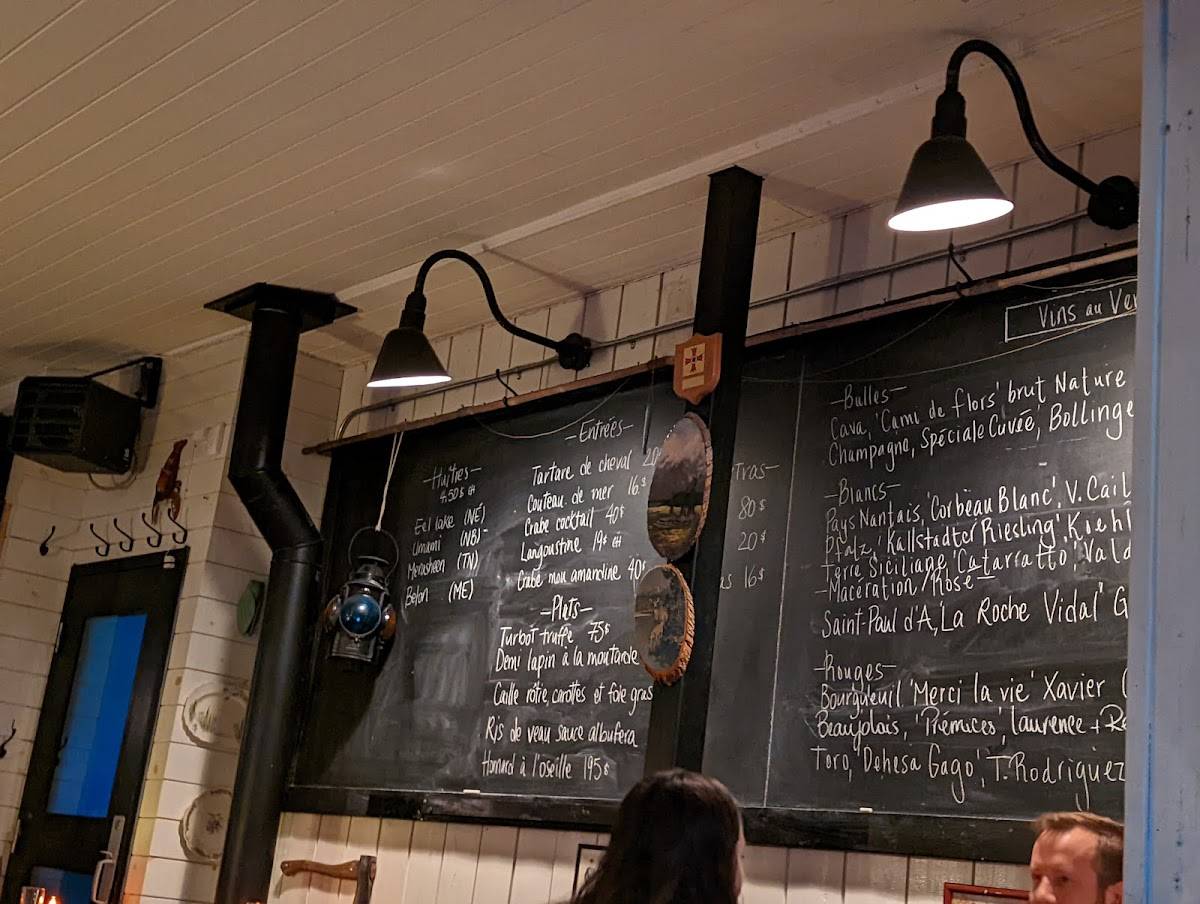 Huîtres
4.50$
Eel lake (NÉ)
Umami (NB)
Merasheen (TN)
Belon (ME)
Entrées
Tartare de cheval 20
Couteau de mer 16$
Crabe cocktail 40$
Langoustine 19$
Crabe mou amandine 40$
Plats
Turbot truffe 75$
Demi lapin à la moutarde
Caille rôtie, carottes et foie gras
Ris de veau sauce albufera
Homard à l'oseille 195$
80$
20$
16$
Vins au Ver
Bulles
Cava, 'Camu de flors' brut Nature
Champagne, 'Spéciale Cuvée', Bollinge
Blancs
Pays Nantais, 'Corbeau Blanc', V. Cail
Pfalz, 'Kallstadter Riesling', Kiehl
Terre Siciliane, 'Catarratto', Vald
Macération / Rosé
Saint-Paul d'A, 'La Roche Vidal' G
Rouges
Bourgueil 'Merci la vie' Xavier
Beaujolais, 'Prémices', Laurence + Re
Toro, Dehesa Gago, T. Rodriguez